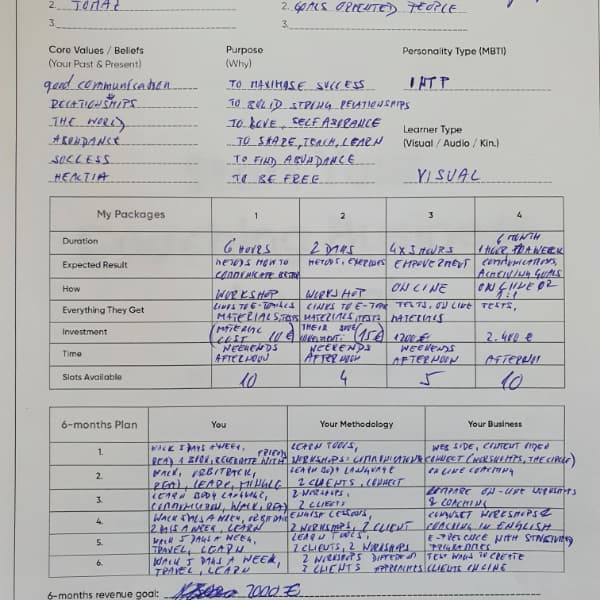 2. TOMAZ
2. GOALS ORIENTED PEOPLE
3.
3.
Core Values / Beliefs
(Your Past & Present)
Purpose
(Why)
Personality Type (MBTI)
good communication
TO MAXIMASE SUCCESS
INTP
RELATIONSHIPS
TO BUILD STRONG RELATIONSHIPS
THE WORLD
TO LOVE, SELF ASSURANCE
Learner Type
(Visual / Audio / Kin.)
ABUNDANCE
TO SHARE, TEACH, LEARN
SUCCESS
TO FIND ABUNDANCE
HEALTH
TO BE FREE
VISUAL
My Packages 1 2 3 4
Duration 6 HOURS 2 DAYS 4 x 3 HOURS 6 MONTH
1 HOUR A WEEK
Expected Result EMPOVERMENT COMMUNICATIONS,
COMMUNICATE BETTER ACHIEVING GOALS
How WORKSHOP WORKSHOP ON LINE ON LINE OR
1:1
Everything They Get LINKS TO E- LINKS TO E- TESTS, ON LINE TESTS,
MATERIALS, TESTS MATERIALS, TESTS MATERIALS
Investment (MATERIAL
COST 10 €) THEIR (15 €) 1200 € 2.400 €
Time WEEKENDS
AFTERNOON WEEKENDS
AFTERNOON WEEKENDS
AFTERNOON
Slots Available 10 4 5 10
6-months Plan You Your Methodology Your Business
1. WALK 5 DAYS A WEEK, LEARN TOOLS, WEB SIDE, CONTENT VIDEO
READ A BOOK, WITH FRIENDS WORKSHOPS - COMMUNICATION CONNECT (WORKSHOPS, THE CIRCLE)
2. WALK, LEARN BODY LANGUAGE ON LINE COACHING
READ, LEARN, MINGLE 2 CLIENTS, CONNECT
3. LEARN BODY LANGUAGE, 2 WORKSHOPS, ON-LINE WORKSHOPS
WALK, READ 2 CLIENTS & COACHING
4. WALK 5 DAYS A WEEK, LESSONS,
LEARN 2 WORKSHOPS, 2 CLIENT COACHING IN ENGLISH
5. WALK 5 DAYS A WEEK, LEARN TOOLS, WITH
TRAVEL, LEARN 2 CLIENTS, 2 WORKSHOPS PROGRAMMES
6. WALK 5 DAYS A WEEK, 2 WORKSHOPS DIFFERENT TO CREATE
TRAVEL, LEARN 2 CLIENTS APPROACHES CLIENTS ONLINE
6-months revenue goal: 7000 €